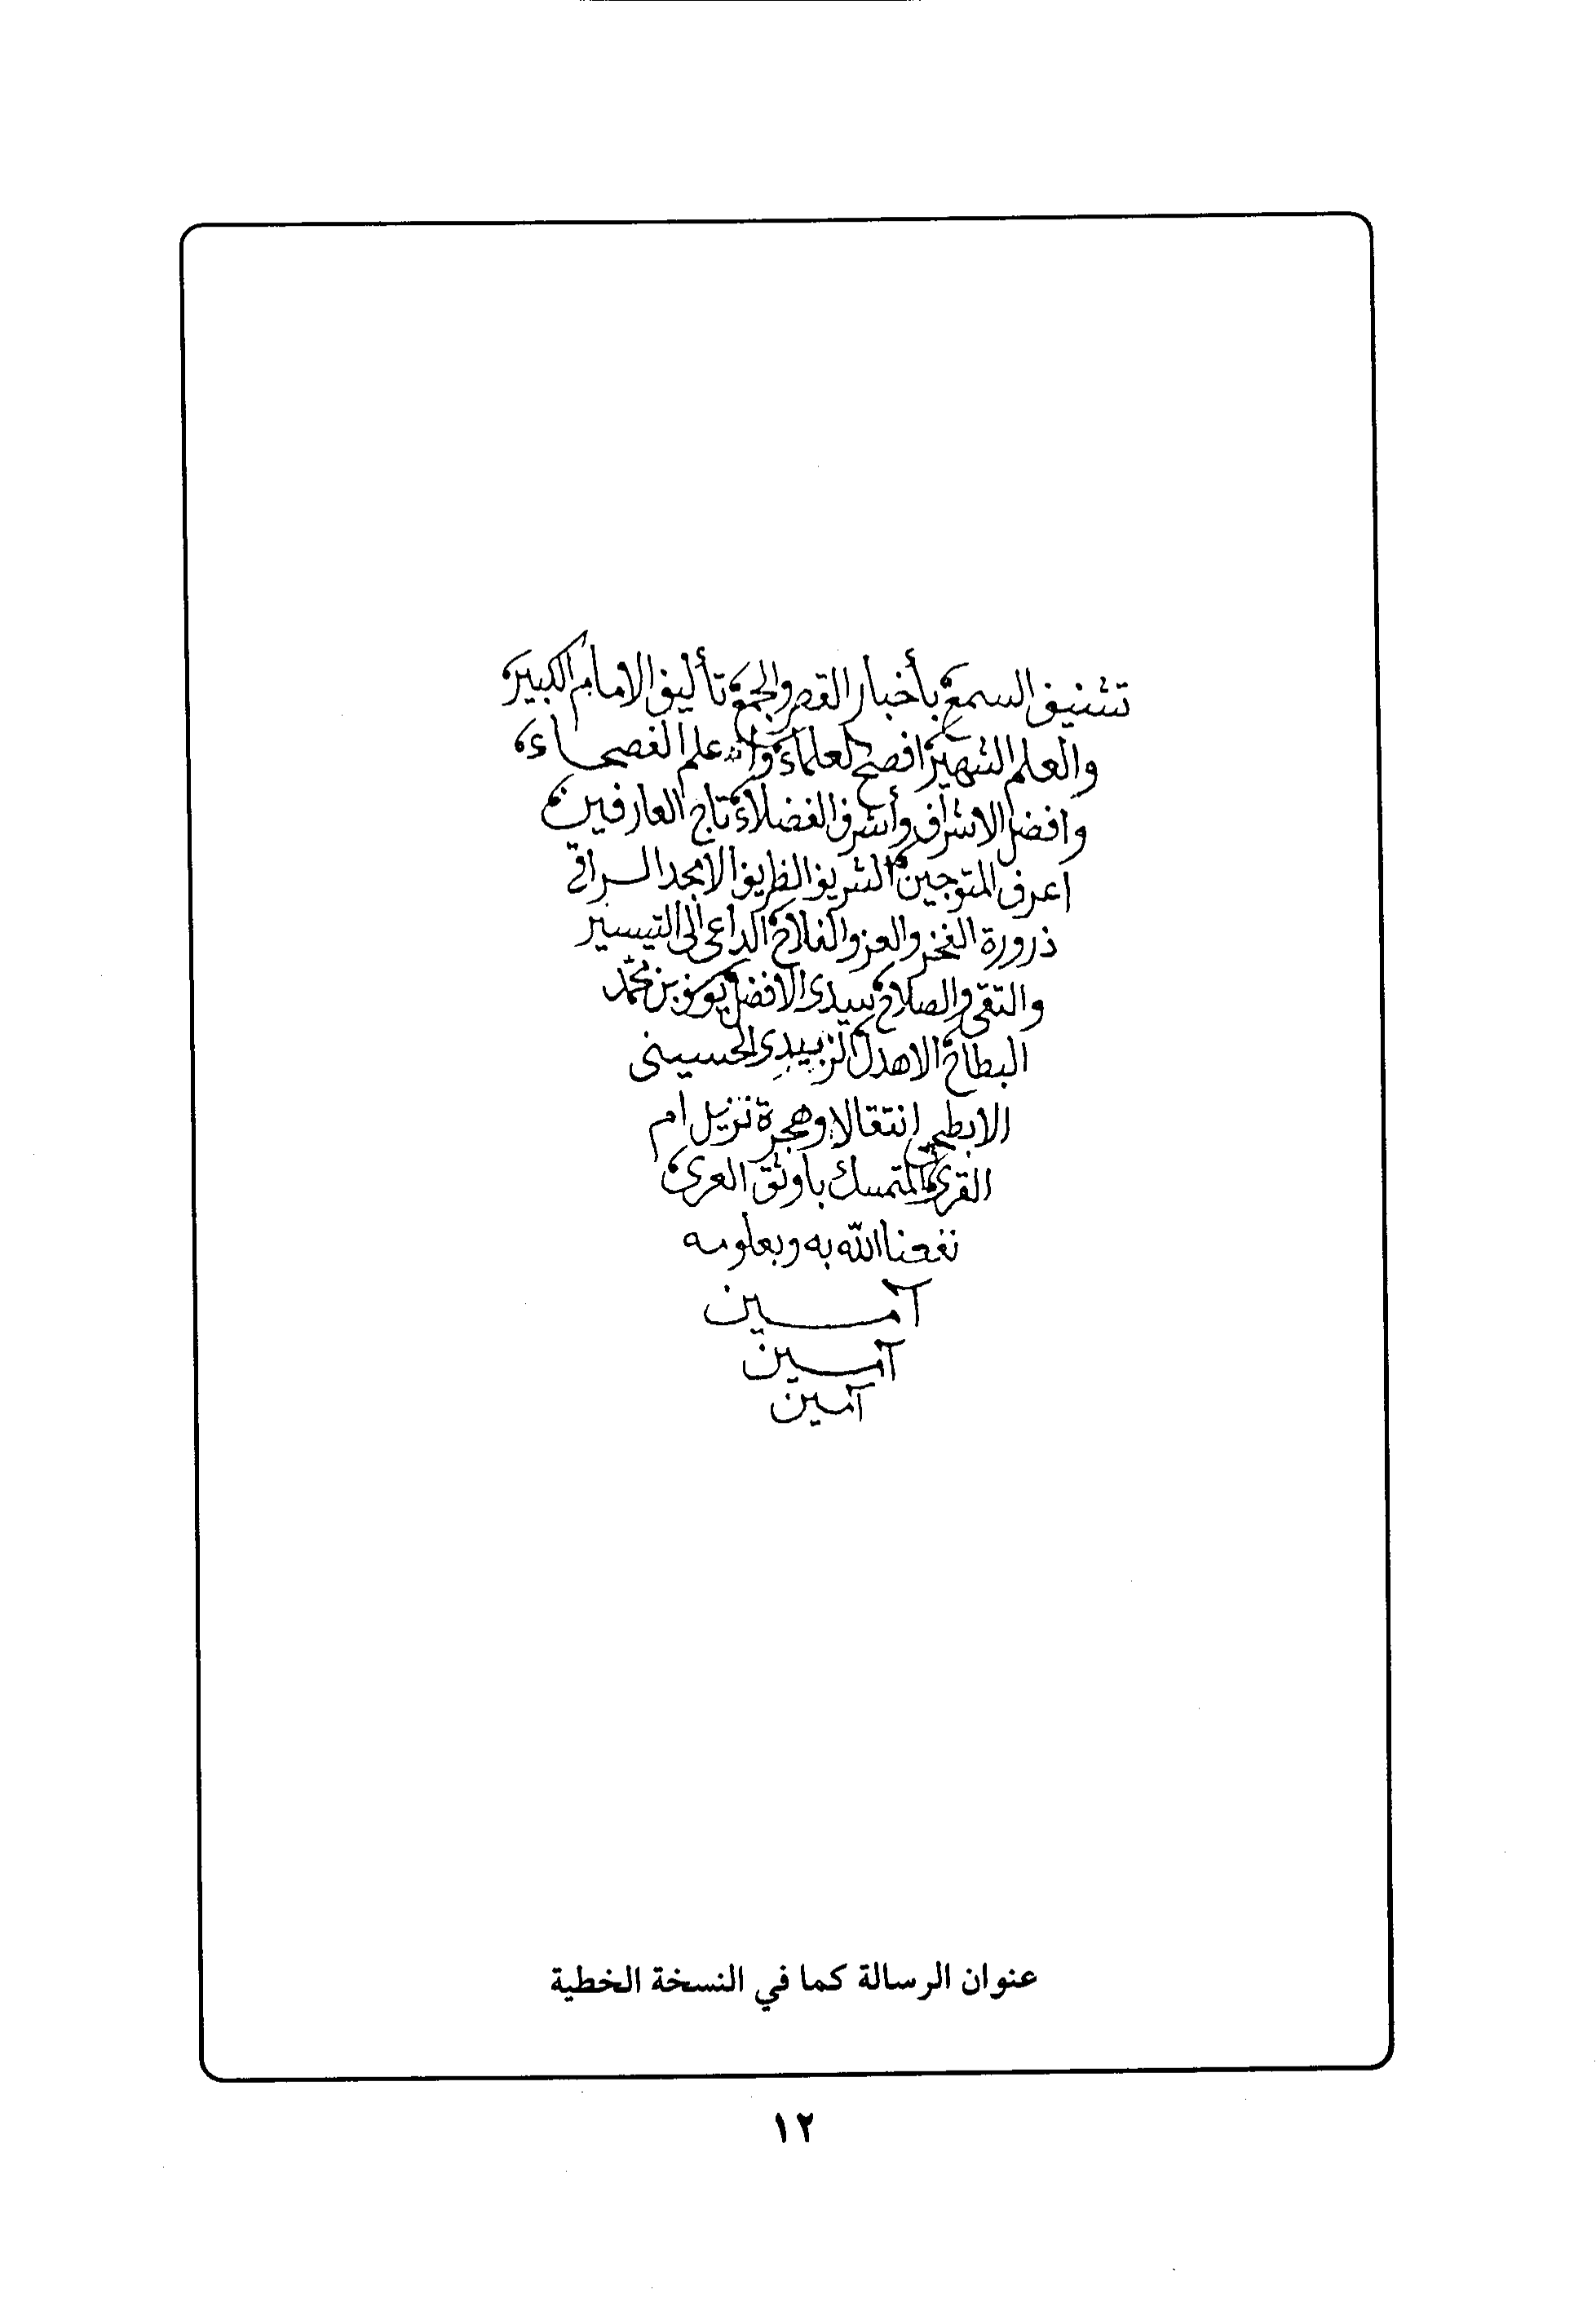 تشنيف السمع بأخبار القصر والجمع تأليف الامام الكبير
والعلم الشهير افصح العلماء واعلم الفصحاء
وافضل الاشراف وأشرف الفضلاء تاج العارفين
اعرف المتوجين الشريف الظريف الامجد الراقي
ذرورة الفخر والعز والفلاح الداعى الى التيسير
والتقى والصلاح سيدى الافضل يوسف بن محمد
البطاح الاهدل الزبيدى الحسينى
الابطحى انتقالا وهجرة نزيل ام
القرى المتمسك باوثق العرى
نفعنا الله به وبعلومه
آمين
آمين
آمين
عنوان الرسالة كما في النسخة الخطية
١٢